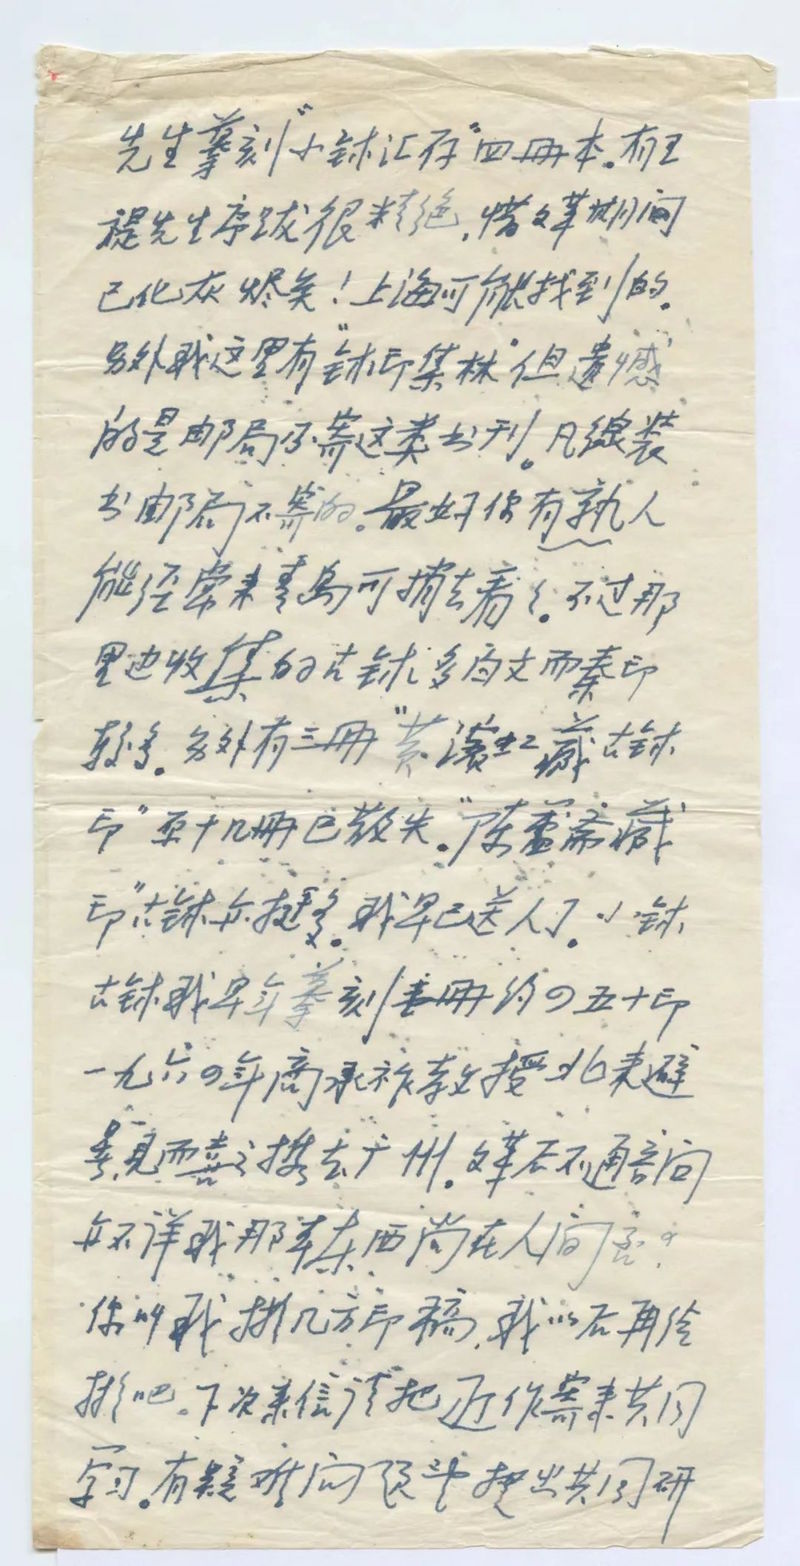 先生摹刻"小鉥汇存"四册本。有王
禔先生序跋很精绝，惜文革期间
已化灰烬矣！上海可能找到的。
另外我这里有"鉥印集林"但遗憾
的是邮局不寄这类书刊。凡线装
书邮局不寄的。最好你有熟人
能经常来青岛可捎去看々。不过那
里边收集的古鉥少多白文而秦印
较多。另外有三册"黄滨虹藏古鉥
印"至十几册已散失。"陈簠斋藏
印"古鉥亦挺多。我早已送人了。小鉥
古鉥我早年摹刻壹册约四五十印
一九六四年商承祚教授北来避
暑见而喜之携去广州。文革后不通音问
亦不详我那本东西尚在人间否？
你叫我拟几方印稿，我以后再给
拟吧。下次来信请把近作寄来共同
学习。有疑难问题也提出共同研